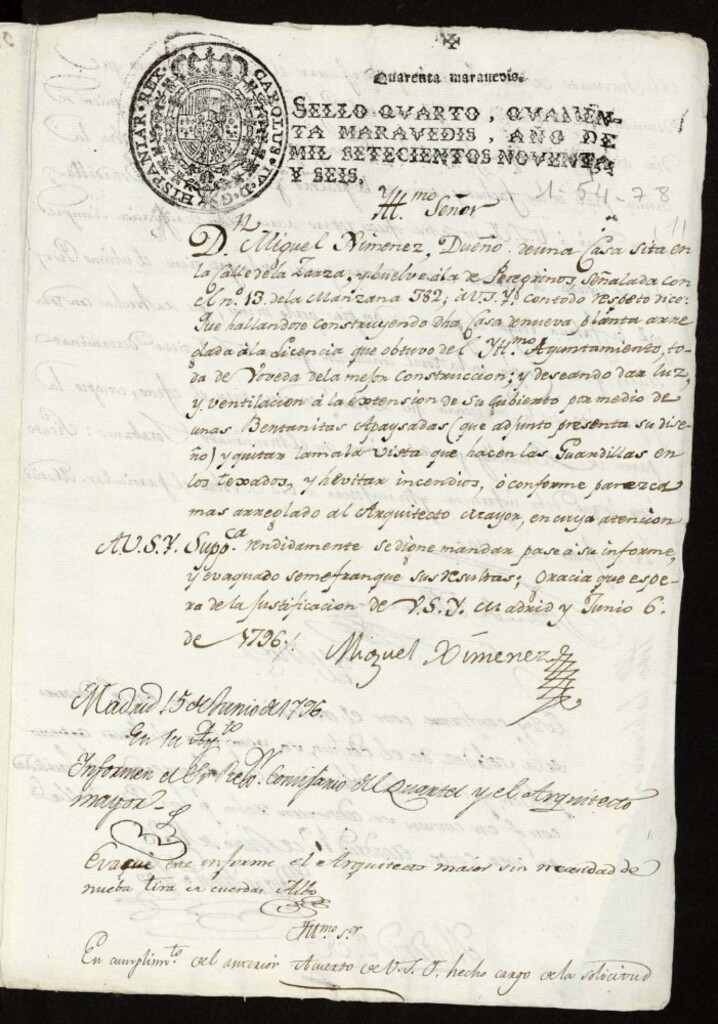 Quarenta maravedis.
SELLO QVARTO, QVAREN-
TA MARAVEDIS, AÑO DE
MIL SETECIENTOS NOVENTA
Y SEIS,
HISPANIAR. REX. CAROLUS. IV. D. G.
1-54-78
Yll.mo Señor
D.n Miguel Ximenez, Dueño de una Casa sita en
la Calle de la Zarza, y buelve á la de Peregrinos, señalada con
el n.o 13. de la Manzana 382; a V.S.Y. con todo respeto dice:
Que hallandose construyendo dha Casa de nueva planta arre-
glada à la Licencia que obtuvo del Yll.mo Ayuntamiento, to-
da de Voveda de la mejor Construccion; y deseando dar luz,
y ventilacion à la extension de su Cubierto por medio de
unas Bentanitas Apaysadas (que adjunto presenta su dise-
ño) y quitar la mala vista que hacen las Guardillas en
los texados, y hevitar incendios, ò conforme parezca
mas arreglado al Arquitecto Mayor, en cuya atencion
A V.S.Y. Sup.ca rendidamente se digne mandar pase à su informe,
y evaquado se me franque sus resultas; Gracia que espe-
ra de la Justificacion de V.S.Y. Madrid y Junio 6.
de 1796.
Miguel Ximenez
Madrid 15 de Junio de 1796.
En su Ayu.to
Informen el S.or Reg.or Comisario del Quartel y el Arquitecto
mayor
Evaque este informe el Arquitecto maior sin necesidad de
nueba tira de cuerdas Albo
Yll.mo S.or
En cumplim.to del anterior Acuerdo de V.S.I. hecho cargo de la solicitud